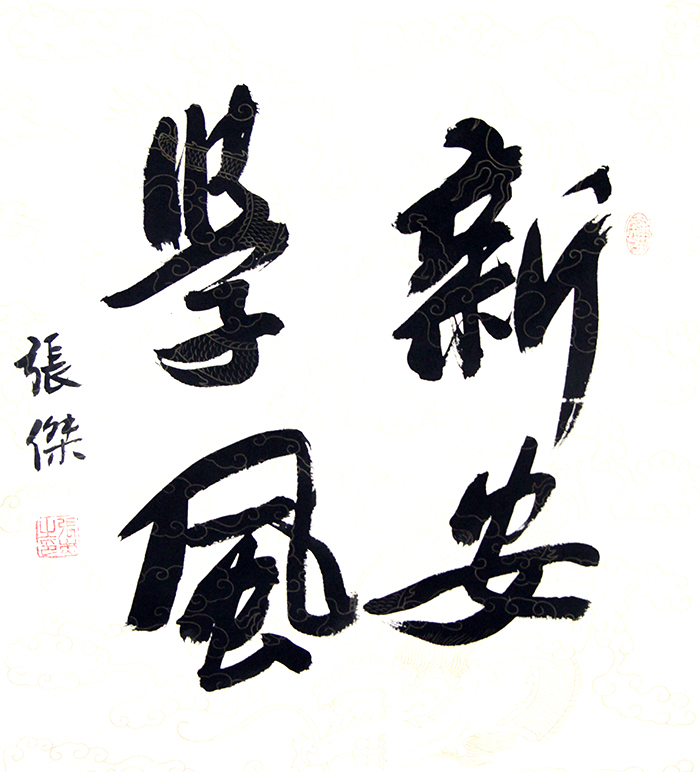 新安
學風
張傑